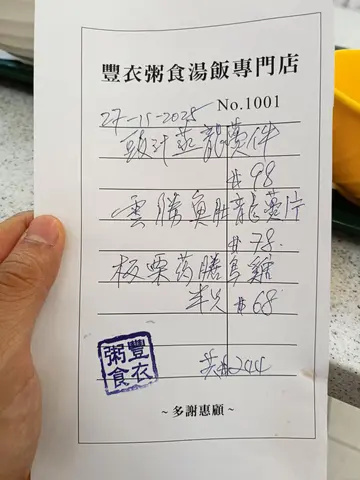 豐衣粥食湯飯專門店
27-11-2025 No.1001
豉汁蒸龍躉件
$98
雲勝魚肚龍躉片
$78.
板栗药膳烏雞
半只 $68
共$244
豐衣
粥食
~多謝惠顧~